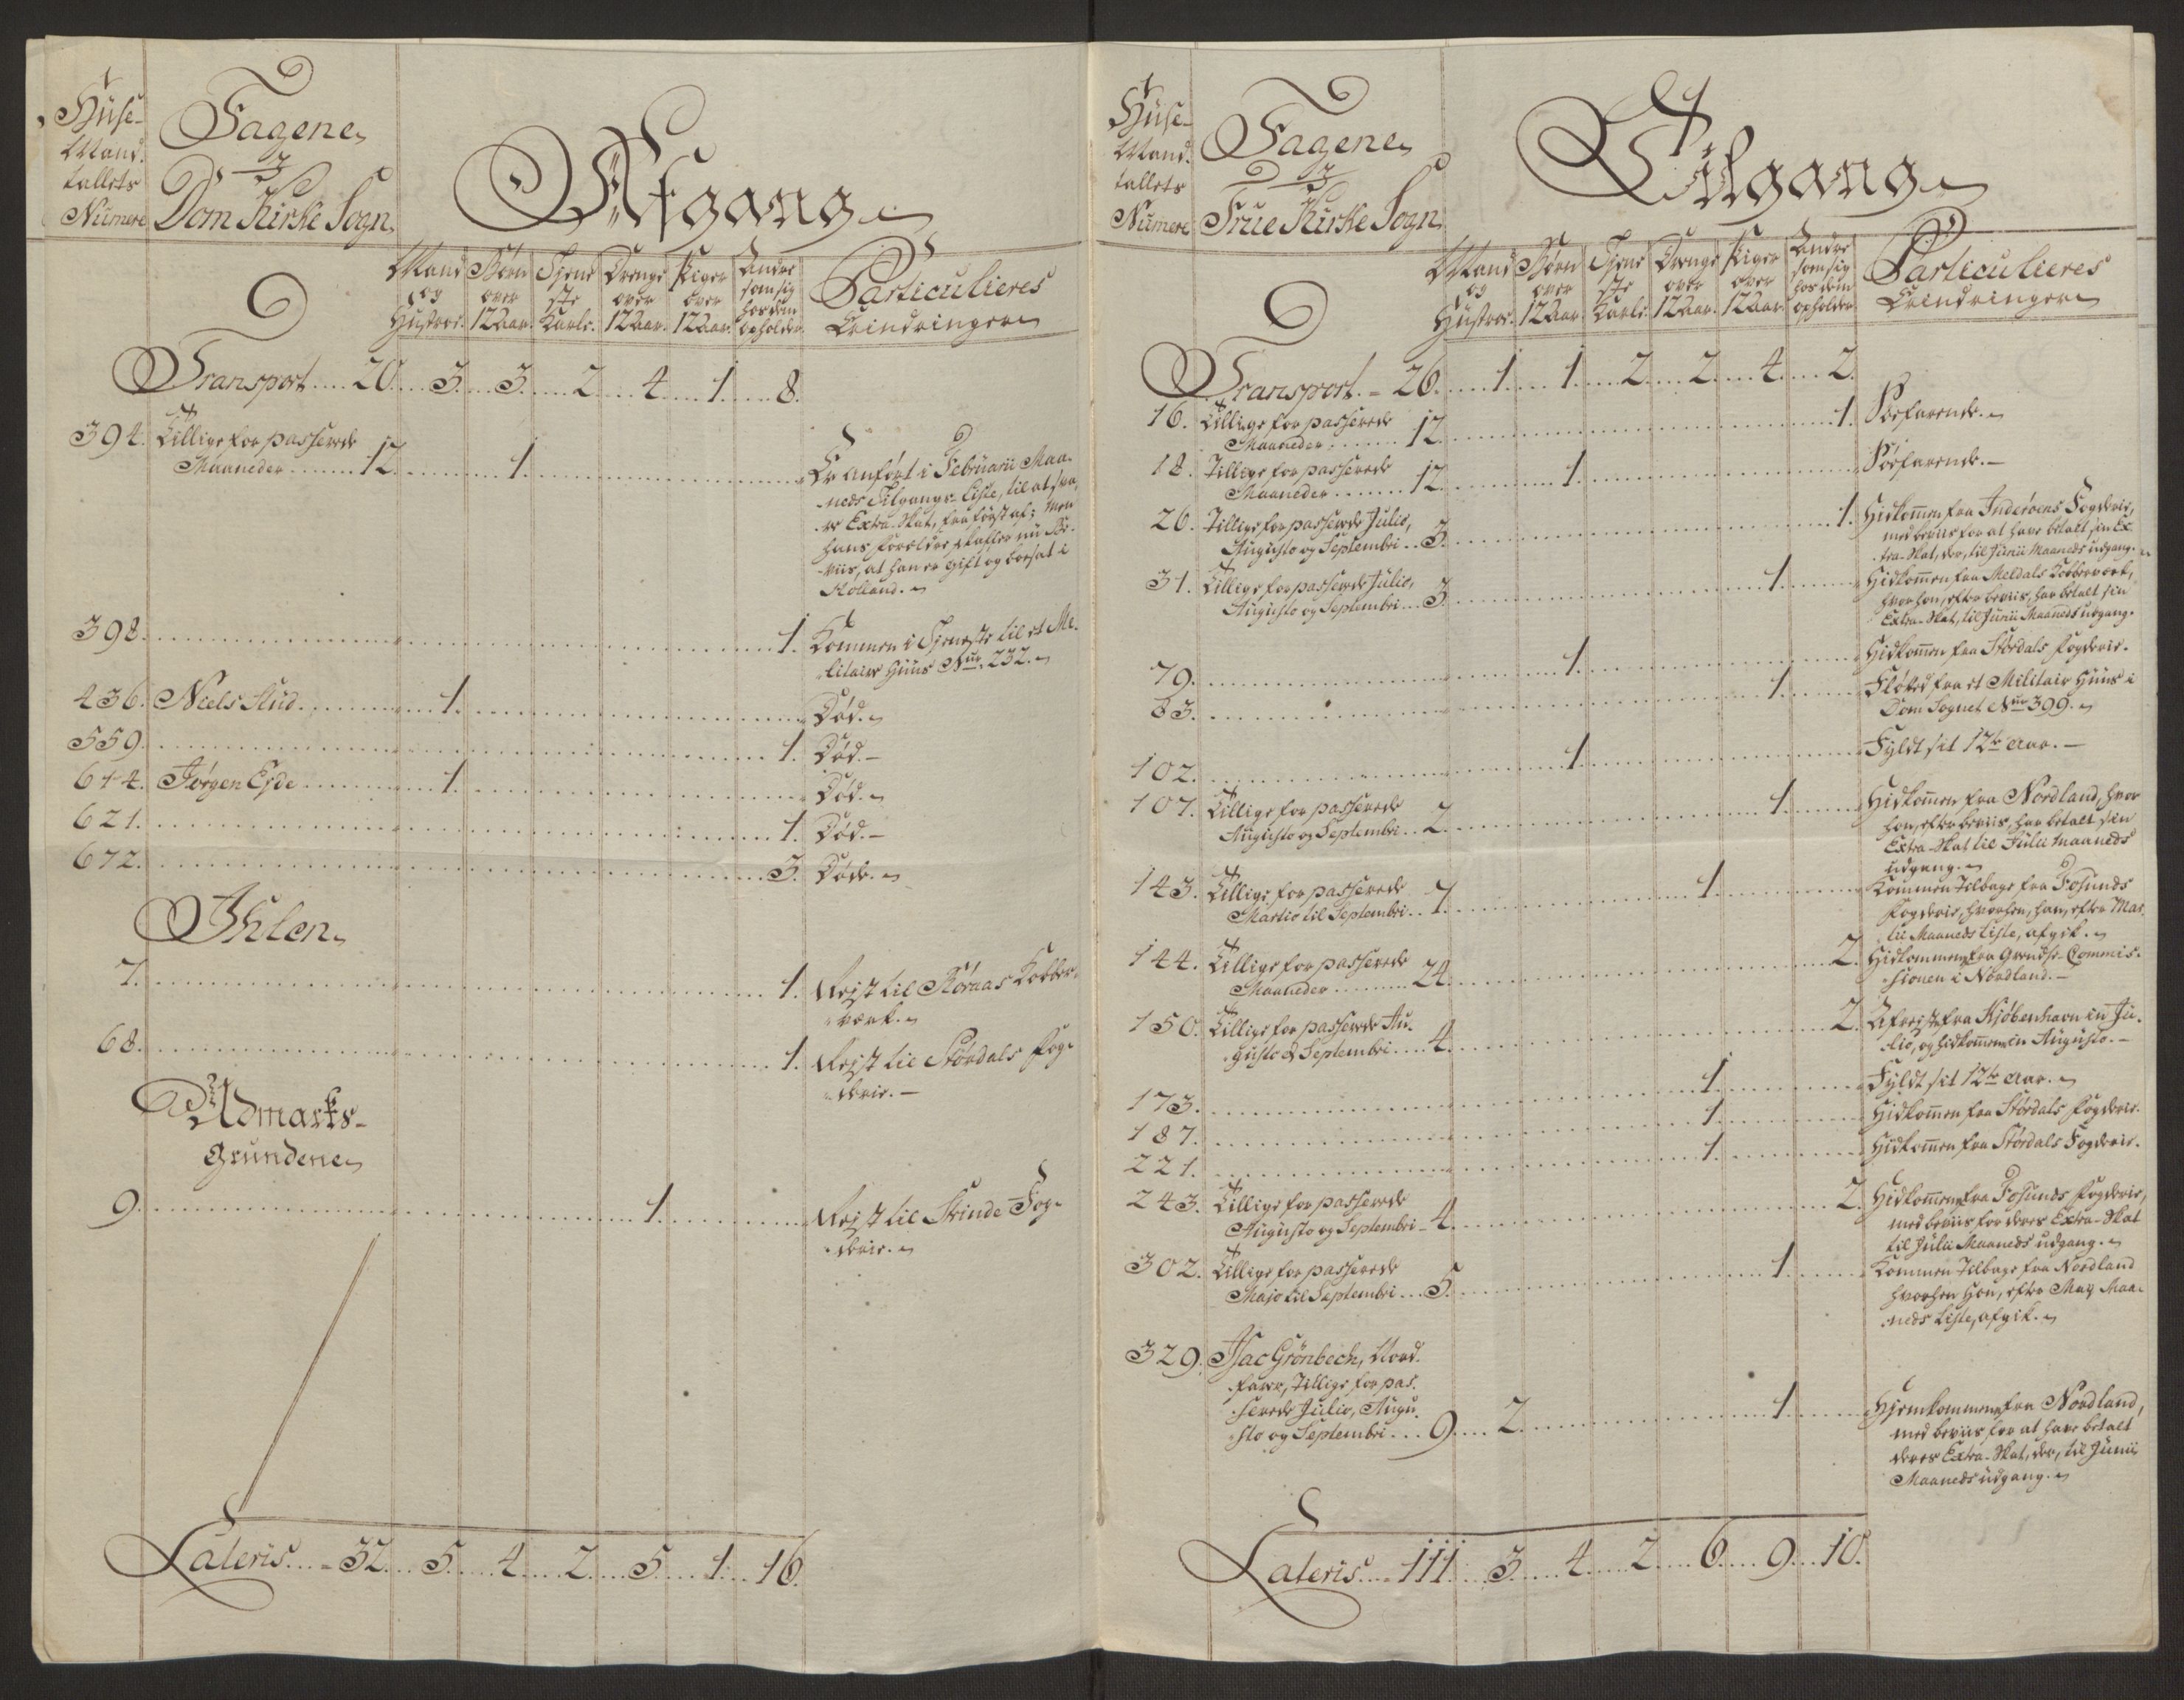 Huse-
Mand-
tallets
Numere
Tagene
i
Dom Kirke Sogn
Afgang
Mand
og
Hustroe.
Børn
over
12 Aar.
Tjene
ste
Karle.
Drenge
over
12 Aar.
Piger
over
12 Aar.
Andre
som sig
hos dem
opholder
Particulieres
Erindringer
Transport.....20....3....3....2....4....1....8.
394. Tillige for passerede
Maaneder........12..........1.......... Er anført i Februarii Maa-
neds Tilgangs-Liste, til at sva-
re Extra-Skat, fra først af; men
hans Forældre skaffer nu Be-
viis, at han er gift og boesat i
Holland.
398..........1. Kommen i Tjeneste til et Mi-
litaire Huus No. 232.
436. Niels Stud..........1.......... Død.
559..........1. Død.-
614. Jørgen Eside..........1.......... Død.
621..........1. Død.-
672..........3. Døde.
Ihlen
7..........1. Rejst til Røraas Kobber-
værk.
68..........1. Rejst til Størdals Fog-
derie.-
Udmarks-
Grundene
9..........1.......... Rejst til Strinde Fog-
derie.
Lateris....32....5....4....2....5....1....16.
Huse-
Mand-
tallets
Numere
Tagene
i
Frue Kirke Sogn
Tilgang
Mand
og
Hustroe.
Børn
over
12 Aar.
Tjene
ste
Karle.
Drenge
over
12 Aar.
Piger
over
12 Aar.
Andre
som sig
hos dem
opholder
Particulieres
Erindringer
Transport.-26.....1....1....2....2....4....2.
16. Tillige for passerede
Maaneder........12..........1. Søefarende.
18. Tillige for passerede
Maaneder........12..........1.......... Søefarende.-
26. Tillige for passerede Julio,
Augusto og Septembri..3..........1. Hidkommen fra Inderøens Fogderie,
med beviis for at have betalt sin Ex-
tra-Skat, der, til Junii Maaneds udgang.
31. Tillige for passerede Julio,
Augusto og Septembri...3..........1.......... Hidkommen fra Meldals Kobberværk,
hvor hun, efter beviis, har betalt sin
Extra-Skat, til Junii Maaneds udgang.
79..........1.......... Hidkommen fra Størdals Fogderie.
83..........1.......... Fløtted fra et Militair Huus i
Dom Sognet No. 399.
102..........1.......... Fyldt sit 12te Aar.-
107. Tillige for passerede
Augusto og Septembri..2..........1.......... Hidkommen fra Nordland, hvor
hun, efter beviis, har betalt sin
Extra-Skat til Julii Maaneds
udgang.
143. Tillige for passerede
Martio til Septembri..7..........1.......... Kommen Tilbage fra Fosunds
Fogderie, hvorhen, han, efter Mar-
tii Maaneds Liste, afgik.
144. Tillige for passerede
Maaneder..........24..........2. Hidkommen fra Grendse-Commis-
sionen i Nordland.-
150. Tillige for passerede Au-
gusto & Septembri....4..........2. Afreiste fra Kiøbenhavn in Ju-
lio, og hidkommen in Augusto.-
173..........1.......... Fyldt sit 12te Aar.
187..........1.......... Hidkommen fra Størdals Fogderie.
221..........1.......... Hidkommen fra Størdals Fogderie.
243. Tillige for passerede
Augusto og Septembri-4..........2. Hidkommen fra Fosunds Fogderie,
med beviis for deres Extra-Skat
til Julii Maaneds udgang.
302. Tillige for passerede
Majo til Septembri...5..........1.......... Kommen Tilbage fra Nordland
hvorhen Hun, efter May Maa-
neds Liste, afgik.
329. Isac Grönbech, Nord-
farer, Tillige for pas-
serede Julio, Augu-
sto og Septembri...9....2..........1.......... Hjemkommen fra Nordland,
med beviis for at have betalt
deres Extra-Skat, der, til Junii
Maaneds udgang.
Lateris....111....3....4....2....6....9....10.